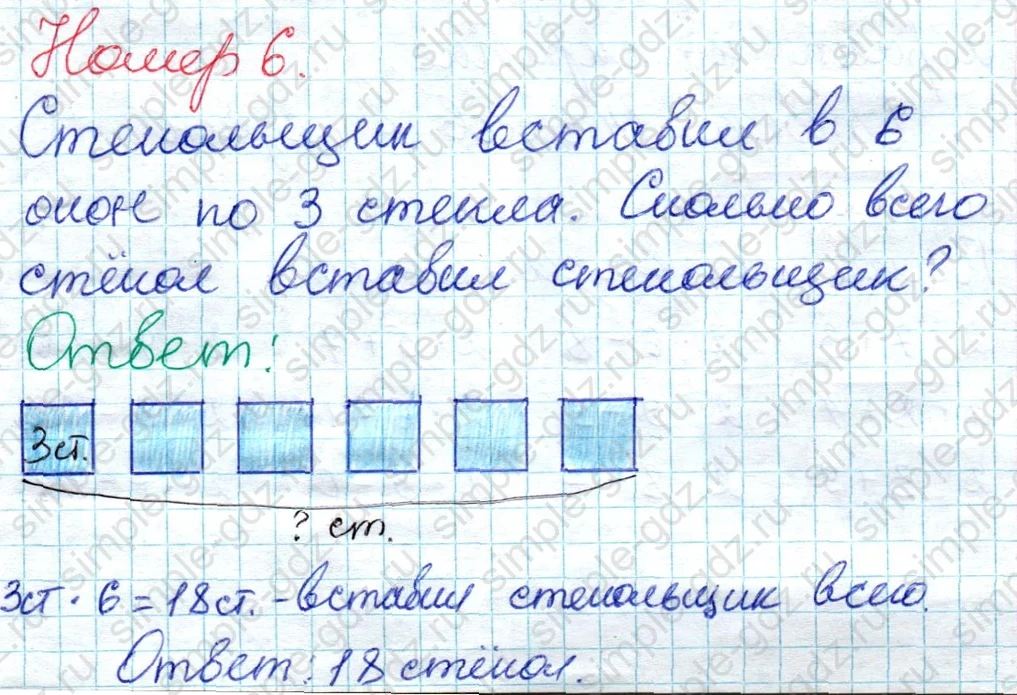 Номер 6.
Стекольщик вставил в 6
окон по 3 стекла. Сколько всего
стёкол вставил стекольщик?
Ответ:
3ст.
? ст.
3ст · 6 = 18ст. - вставил стекольщик всего.
Ответ: 18 стёкол.
simple-gdz.ru